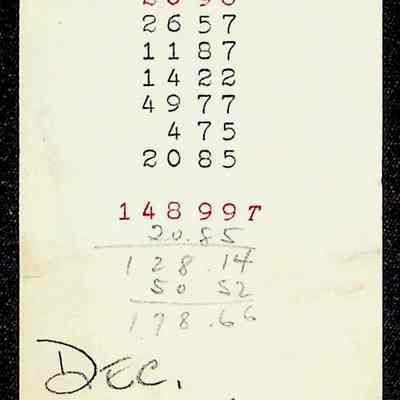 2657
1187
1422
4977
475
2085
14899T
20.85
128.14
50 52
178.66
DEC.